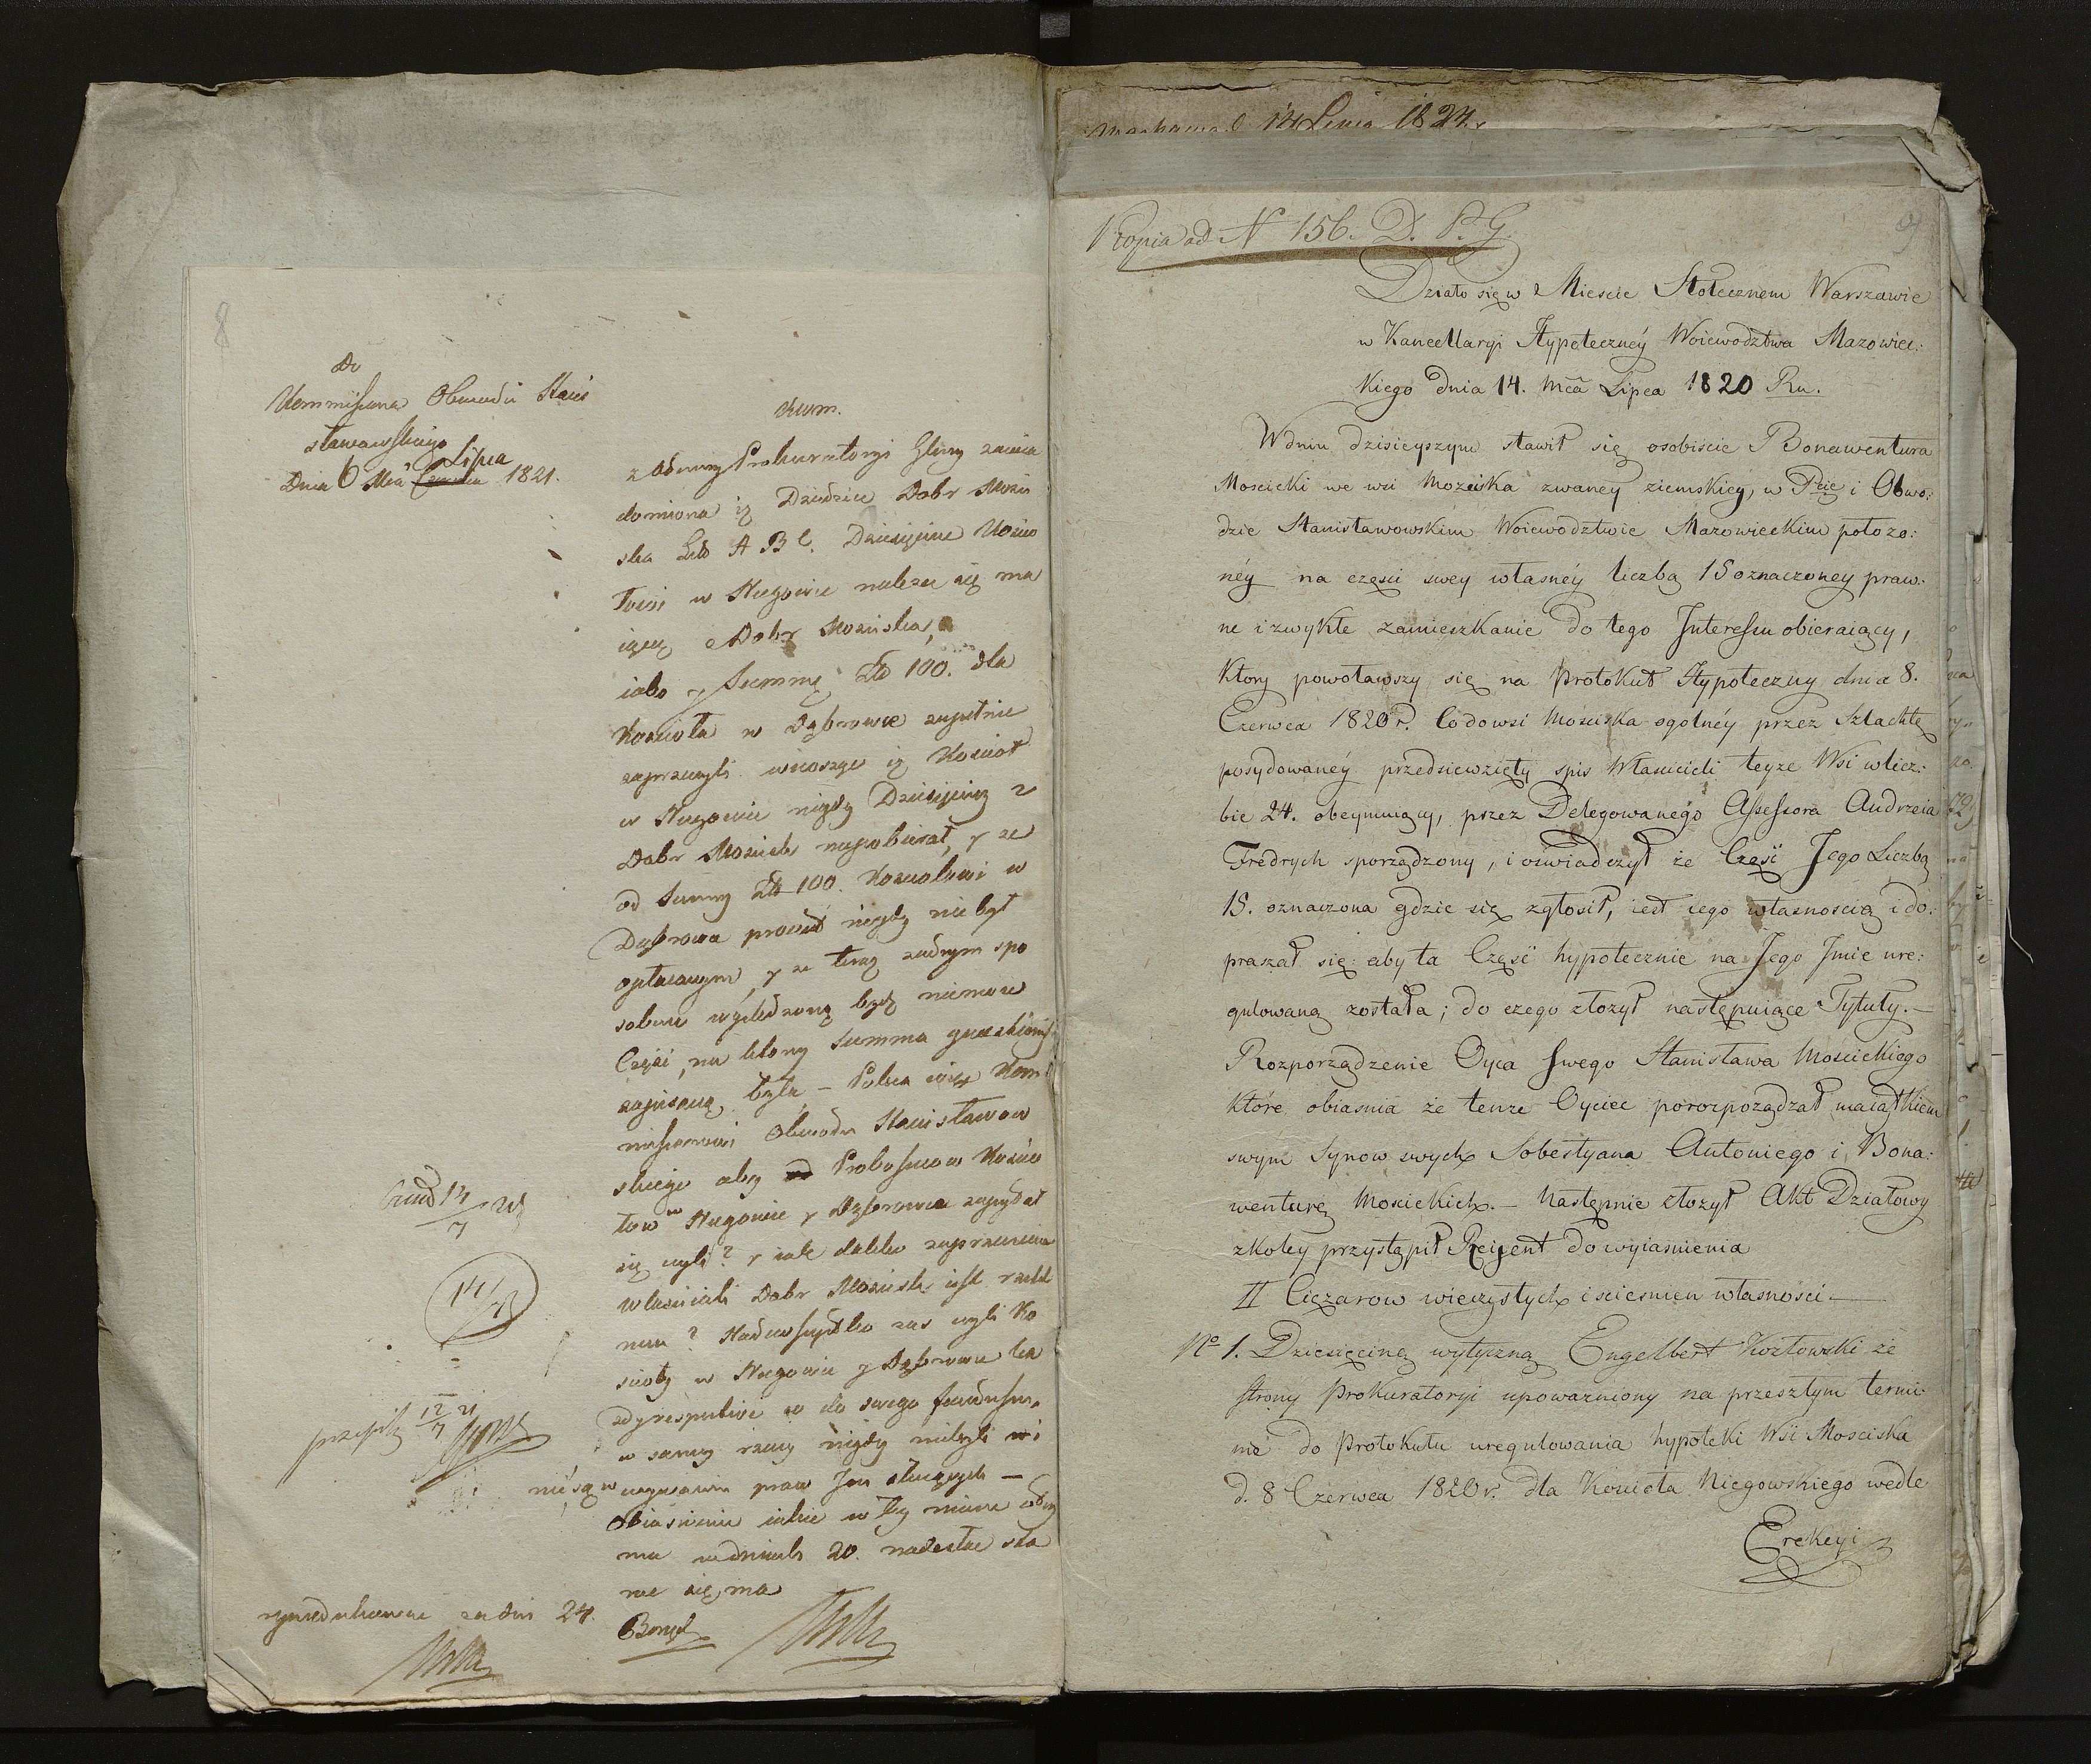 8
Do
Kommissarza Obwodu Stani
sławowskiego
Lipca
Dnia 6 Mca Czerwca 1821.
Kom.
z Odezwy Prokuratoryi Glney zawia
domiona iż Dziedzice Dobr Mosci
ska Litt A B C. Dziesięcine Koscio
łowi w Niegowie należeć się ma
iącą z Dobr Mosciska,
iako y Summę Zło 100. dla
Kosciola w Dąbrowce zupełnie
zaprzeczyli wnosząc iż Kosciół
w Niegowie nigdy Dziesięciny z
Dobr Mosciska niepobierał, y że
od Summy Zło 100. Kosciołowi w
Dąbrowce procent nigdy nie był
opłacanym, y że teraz żadnym spo
sobem wysledzoną bydź niemoże
Częsć, na ktorey Summa
zapisaną była – Poleca więc Kom
missarzowi Obwodu Stanisławow
skiego aby od Proboszczow Koscio
łow w Niegowie y Dąbrowce zapytał
się czyli? y iak daleko zaprzeczenie
Włascicieli Dobr Mosciska iest rzetel
nem? Nadewszystko zas czyli Ko
scioły w Niegowie y Dąbrowce ka
żdy respective co do swego funduszu
w samey rzeczy nigdy niebyli i
nie są w używaniu praw Im służących —
Obiasnienie iakie w tey mierze
ma w dniach 20. nadesłać sta
rać się ma
14/7
przepis 12/7 21
za dni 24.
14 Lipca 1824.
Kopia ad N 156. D. P. G.
9
Działo się w Miescie Stołecznem Warszawie
w Kancellaryi Hypoteczney Woiewodztwa Mazowiec:
kiego dnia 14. Mca Lipca 1820 Ru.
W dniu dzisieyszym stawił się osobiscie Bonawentura
Moscicki we wsi Mozciska zwaney ziemskiey, w Pcie i Obwo:
dzie Stanisławowskim Woiewodztwie Mazowieckim położo:
néy na częsci swey własnéy liczbą 15 oznaczoney praw:
ne i zwykłe zamieszkanie do tego Interessu obieraiący,
ktory powoławszy się na Protokuł Hypoteczny dnia 8.
Czerwca 1820 r. co do wsi Mosciska ogolnéy przez Szlachtę
posydowanéy przedsiewzięty spis Włascicieli teyże Wsi w licz:
bie 24. obeymuiący, przez Delegowanégo Assessora Andrzeia
Fredrych sporządzony, i oswiadczył że Częsć Jego Liczbą
15. oznaczona gdzie się zgłosił, iest iego własnoscią i do:
praszał się: aby ta Częsć hypotecznie na Jego Jmie ure:
gulowaną została; do czego złożył następuiące Tytuły.—
Rozporządzenie Oyca Swego Stanisława Moscickiego
które obiasnia że tenże Oyciec porozpoządzał maiątkiem
swym Synow swych Sobestyana Antoniego i Bona:
wenturę Moscickich.— Następnie złożył Akt Działowy
z koley przystąpił Rejent do wyiasnienia
II Ciężarow wieczystych i sciesnien własnosci —
No 1. Dziesięcinę wytyczną Engelbert Kozłowski ze
strony Prokuratoryi upoważniony na przeszłym termi:
nie do Protokułu uregulowania hypoteki Wsi Mosciska
d. 8 Czerwca 1820 r. dla Kosciola Niegowskiego wedle
Erekcyi